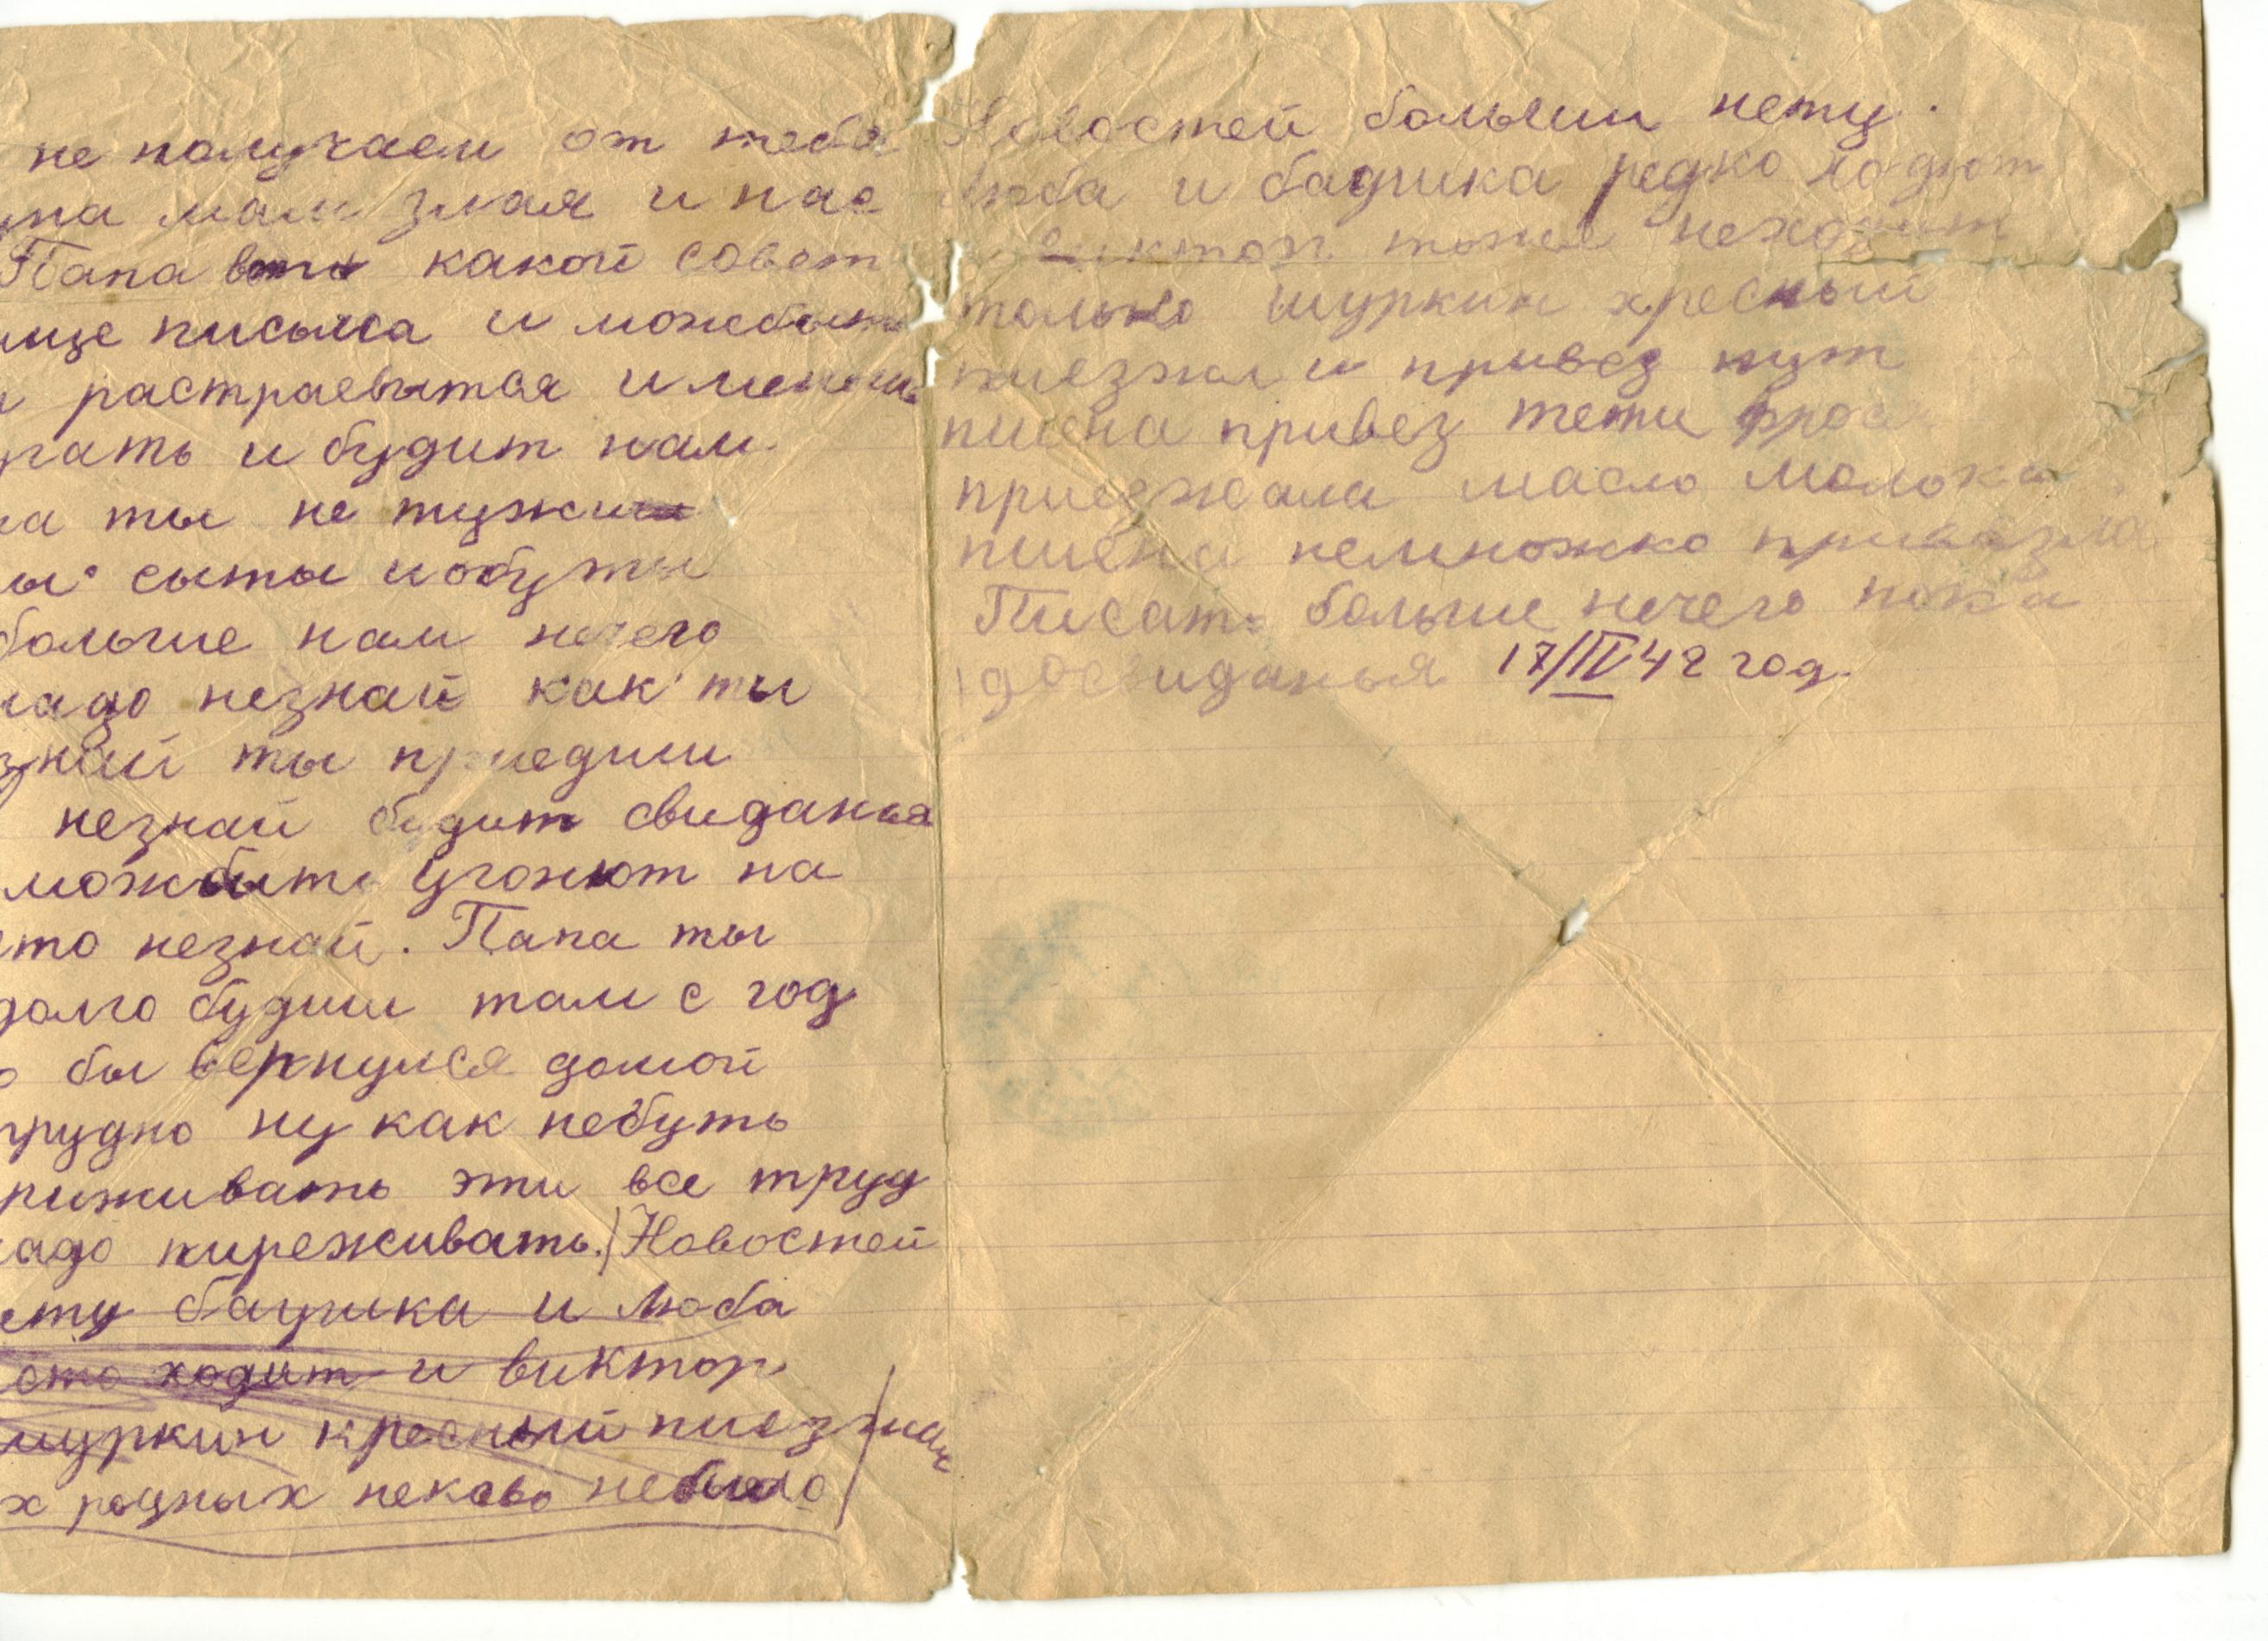 не получаем от тебя
мам злая и нас
Папа какой совет
письма и можебыть
растраевытся и меньши
гать и будит нам.
ты не тужи
сыты и обуты
больше нам нечего
надо незнай как ты
знай ты приедиш
незнай будит свиданья
можбыть угонют на
незнай. Папа ты
долго будиш там с год
бы вернулся домой
трудно ну как небуть
риживать эти все труд
надо пиреживать. Новостей
бацика и Люба
ходит и виктор
шуркин кресный пиезжал
х роцных неково небыло
Новостей больши нету.
Люба и бадика редко ходют
виктор тоже неходит
только шуркин хресный
пиезжал и привез пут
пшена привез тети Фрося
приезжала масло молока
пшёна немножко привазла
Писать больше нечего пока
досвиданья 17/IV 42 год.